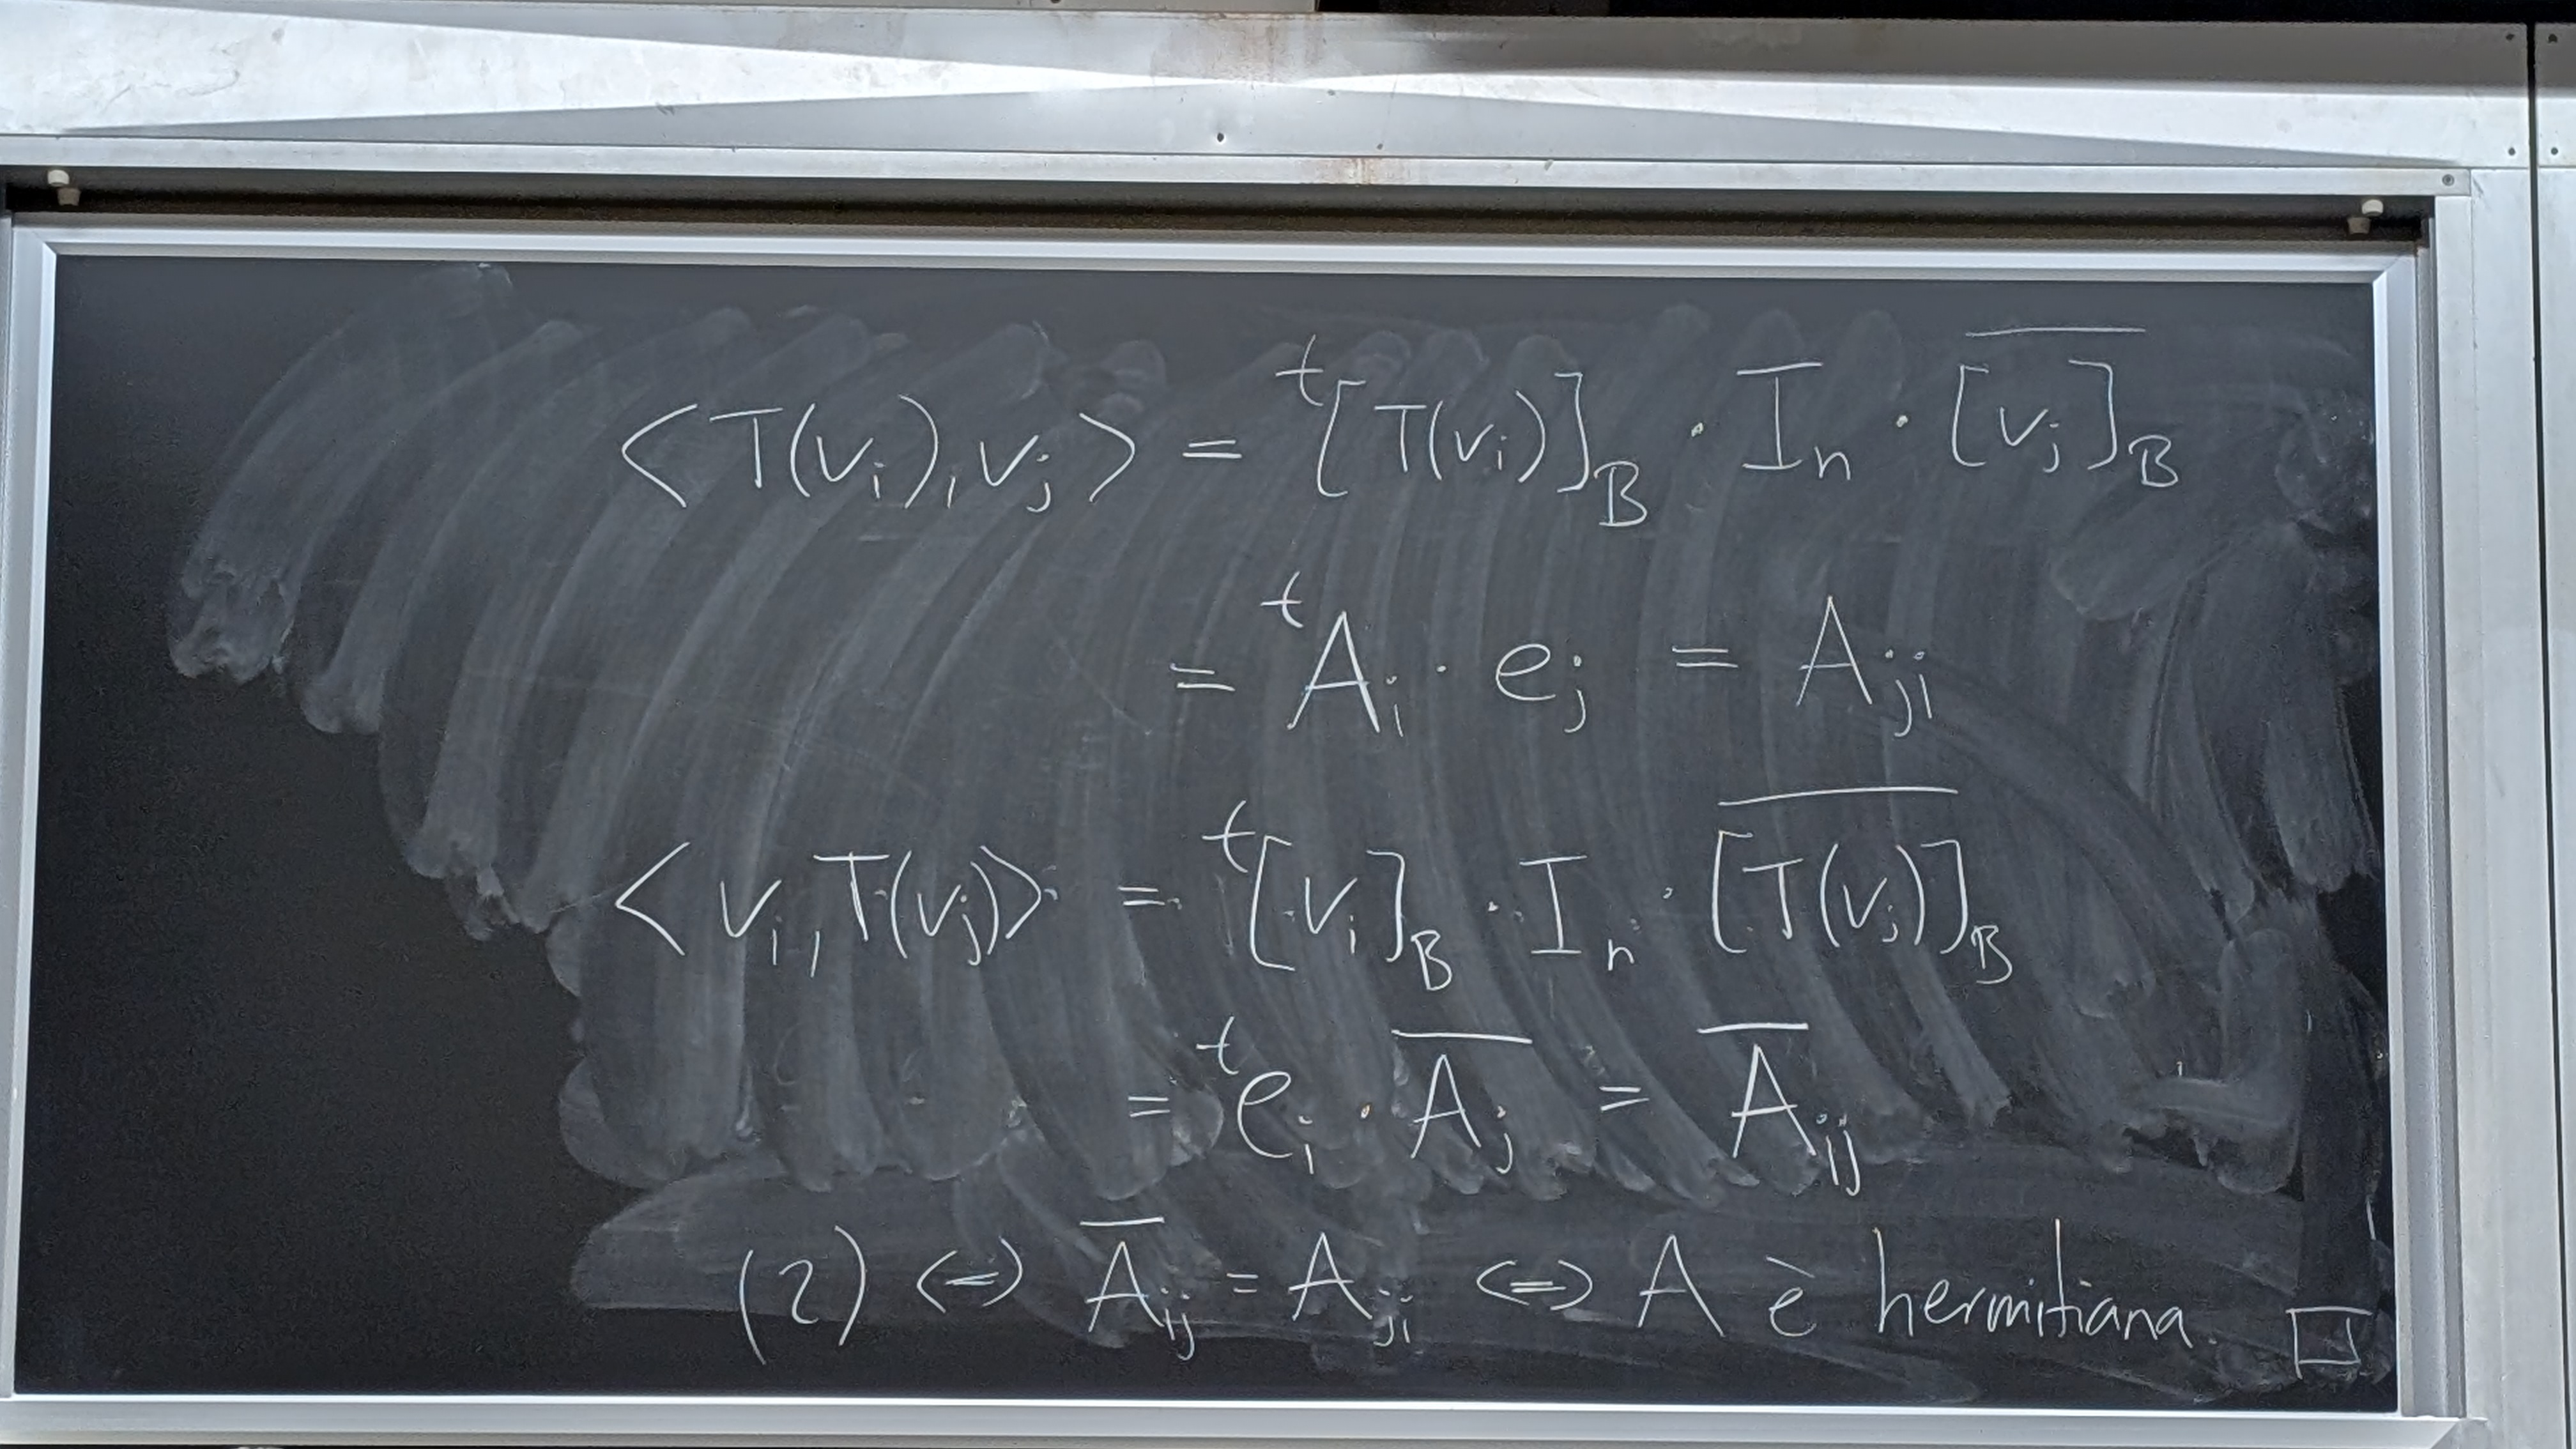 <T(vᵢ), vⱼ> = ᵗ[T(vᵢ)]_B · Iₙ · \overline{[vⱼ]}_B
= ᵗAᵢ · eⱼ = Aⱼᵢ
<vᵢ, T(vⱼ)> = ᵗ[vᵢ]_B · Iₙ · \overline{[T(vⱼ)]}_B
= ᵗeᵢ · \overline{Aⱼ} = \overline{A}ᵢⱼ
(2) <=> \overline{A}ᵢⱼ = Aⱼᵢ <=> A è hermitiana. □